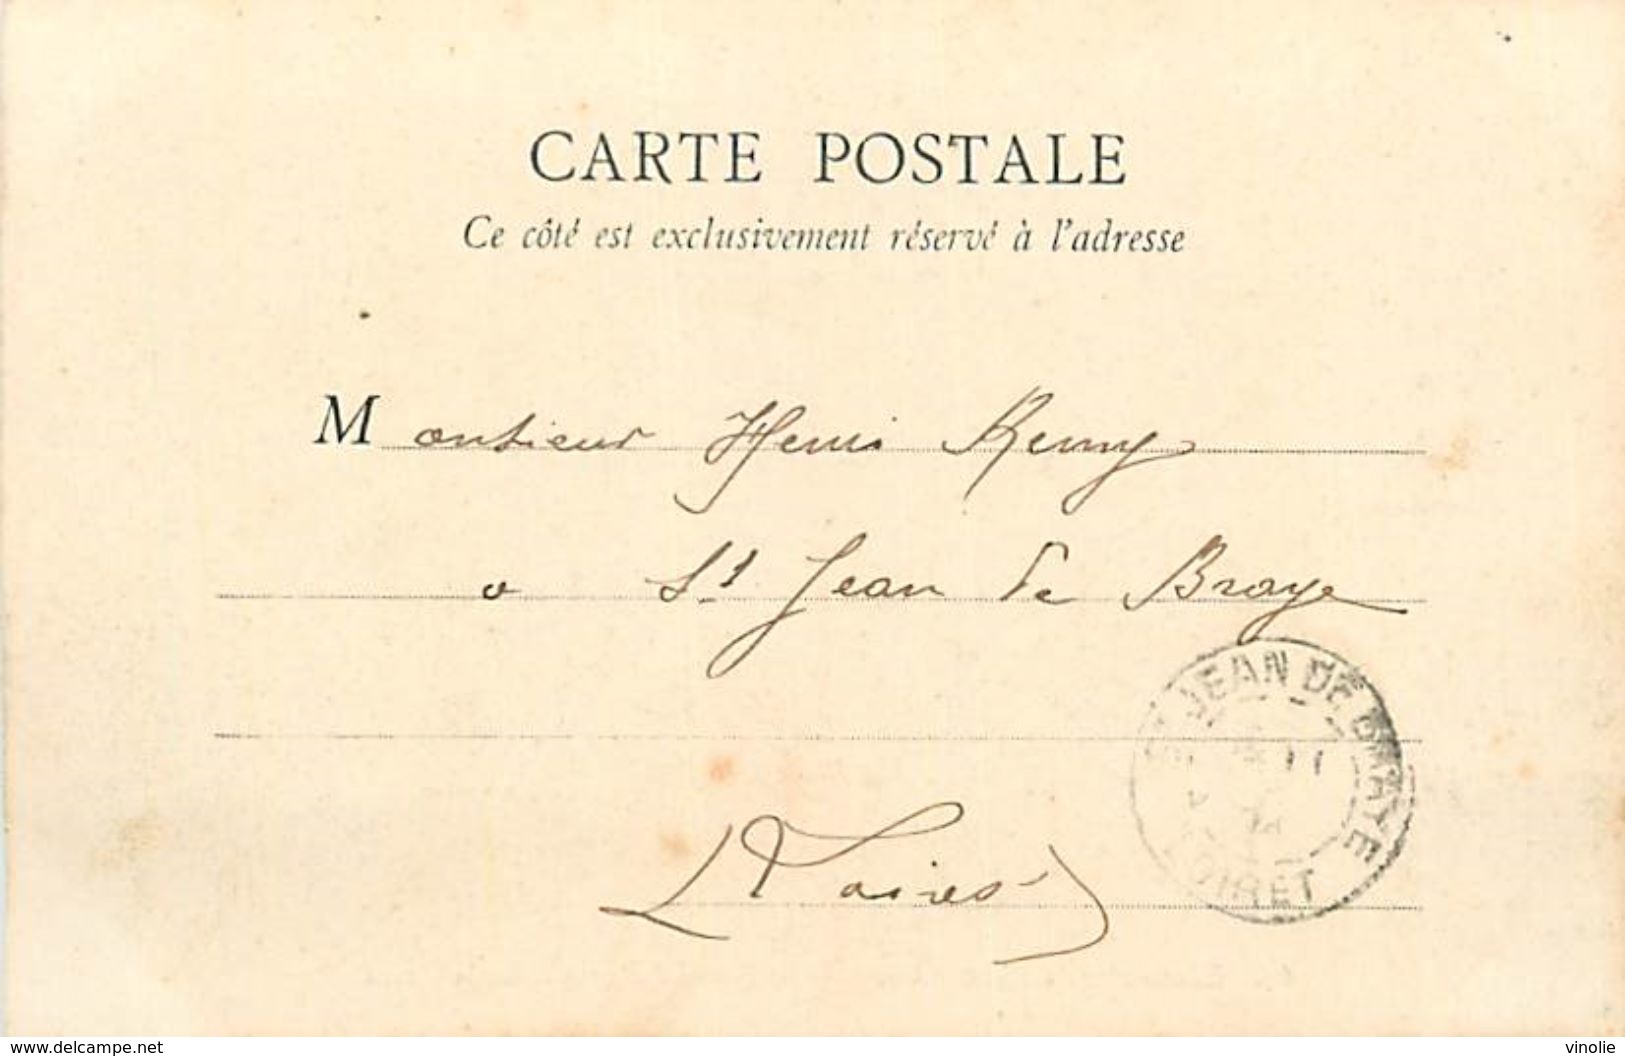 CARTE POSTALE
Ce côté est exclusivement réservé à l'adresse
Monsieur Henri Remy
à St Jean de Braye
JEAN DE BRAYE
LOIRET
www.delcampe.net
vinolie